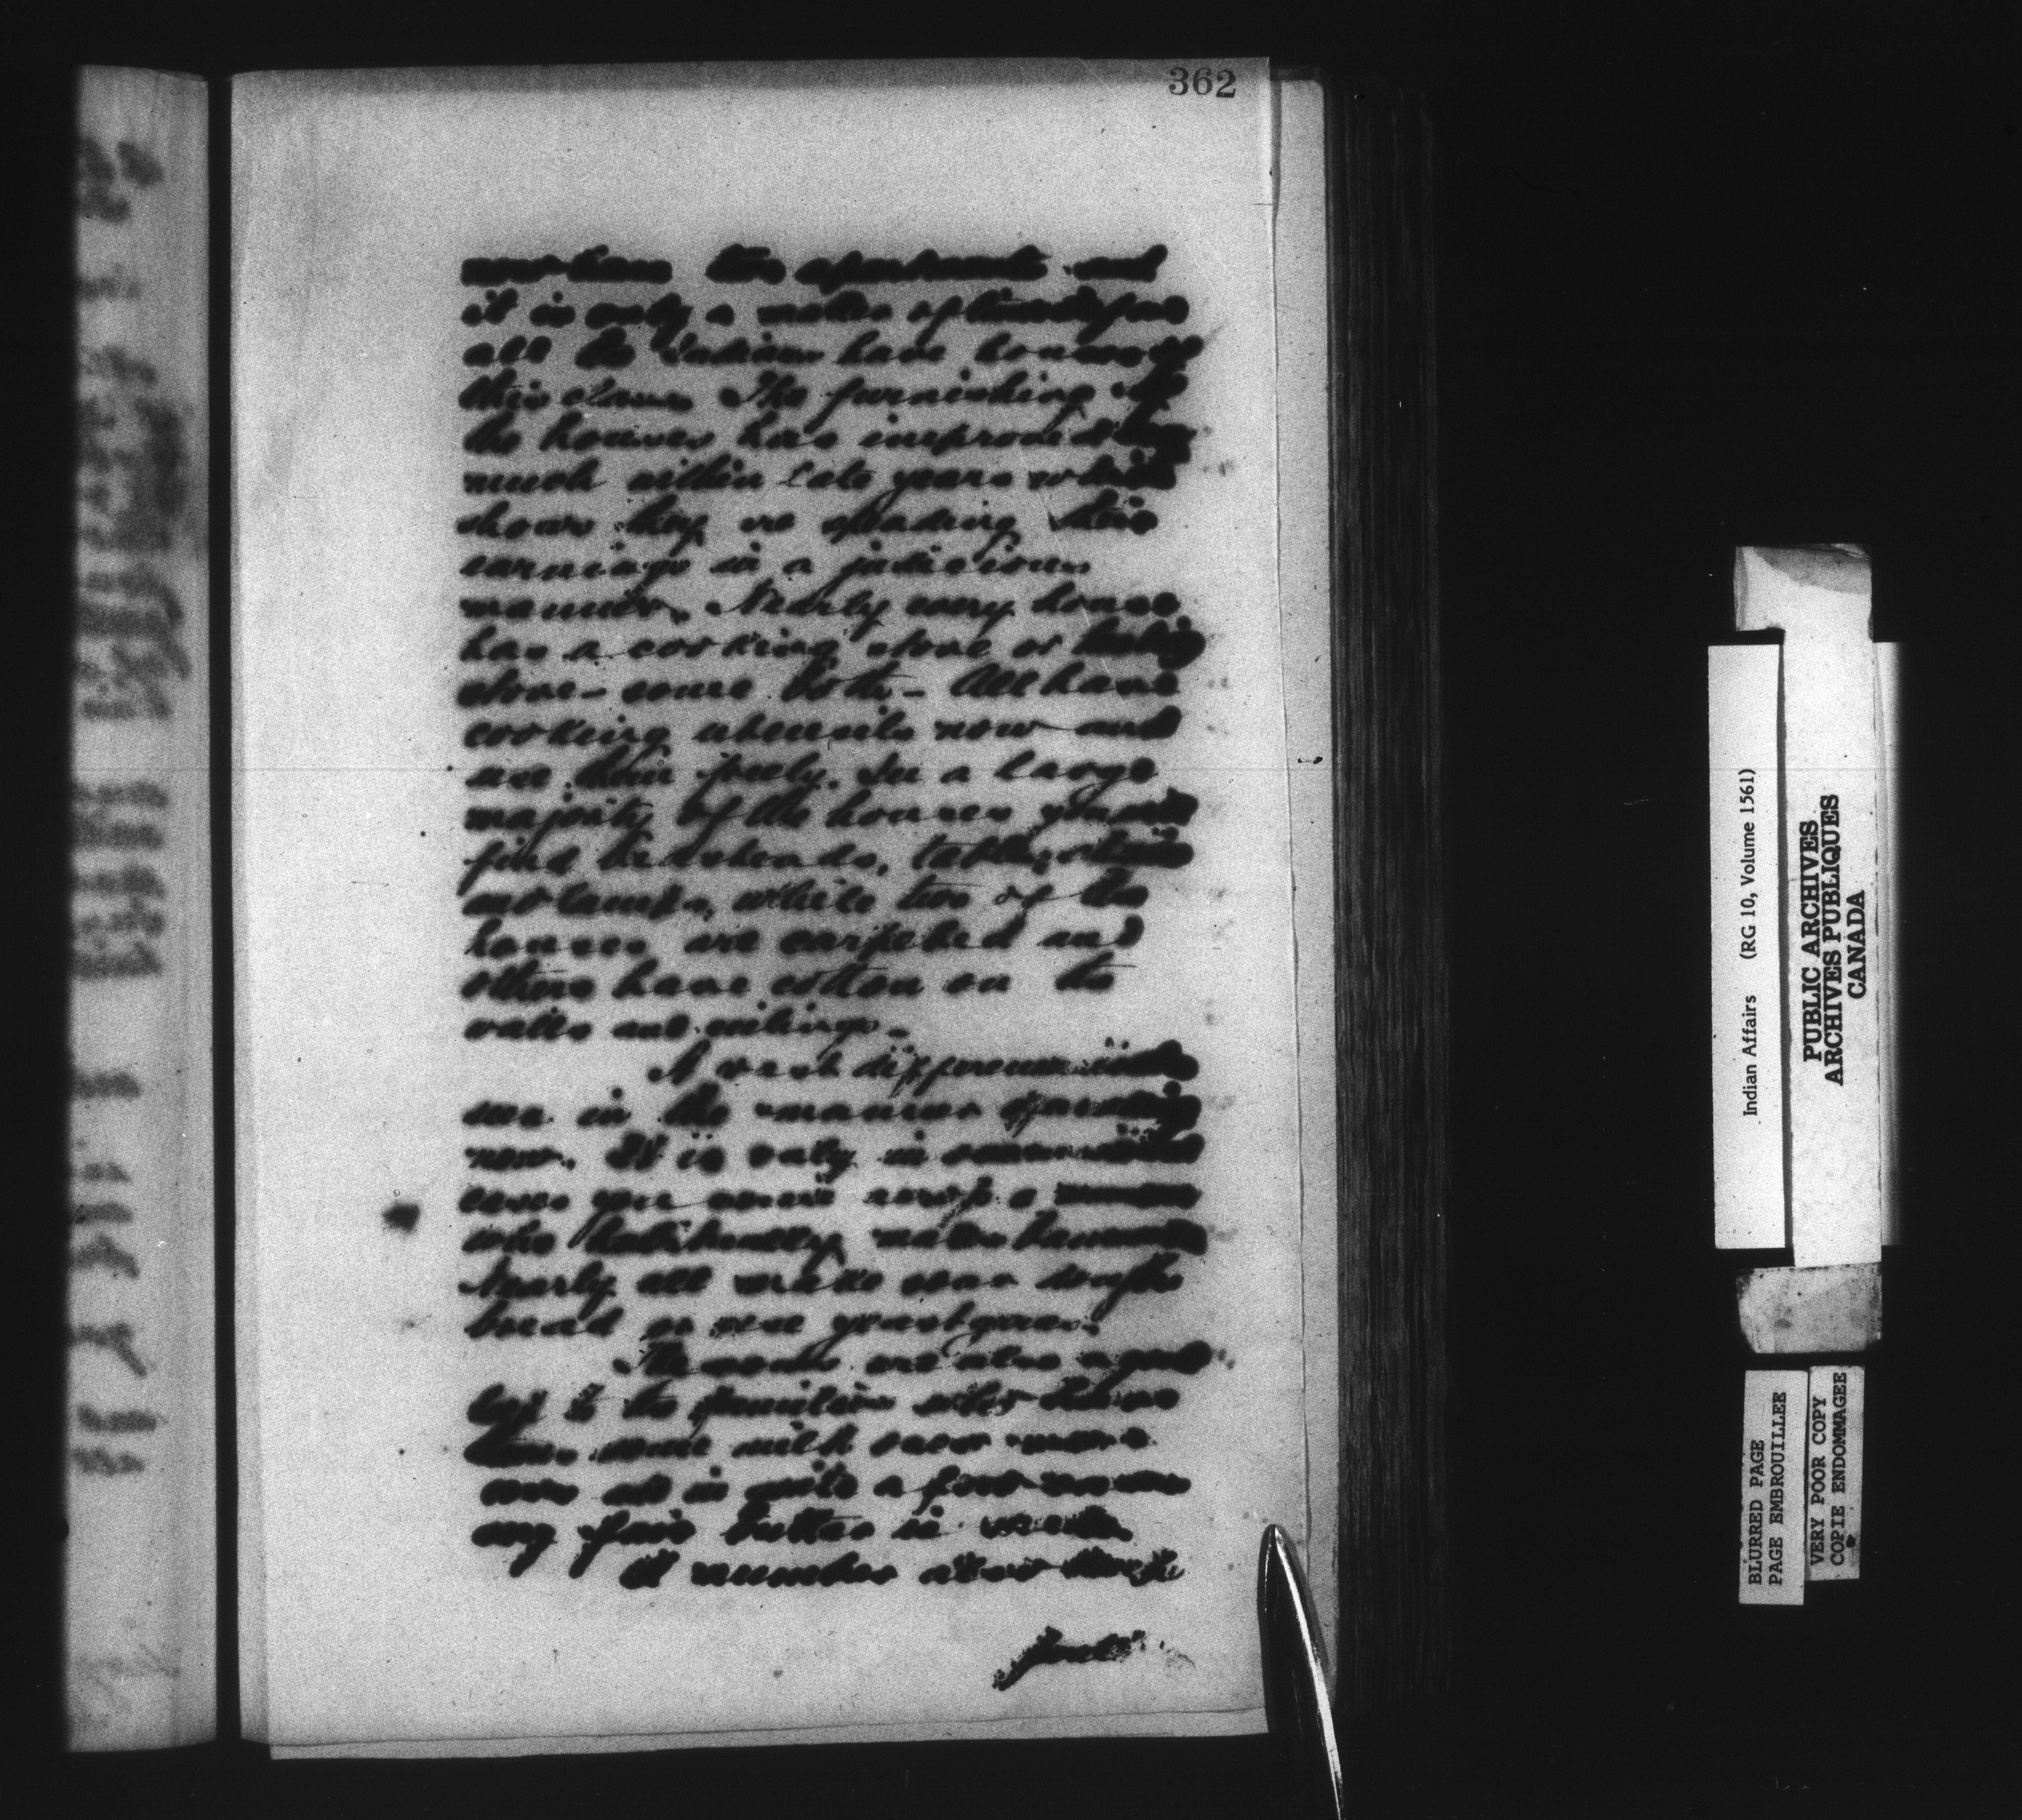 362
more than two apartments and
it is only a matter of time before
all the Indians have houses of
this class. The furnishing of
the houses has improved very
much within late years which
shows they are spending their
earnings in a judicious
manner. Nearly every house
has a cooking stove or heating
stove - some both - All have
cooking utensils now and
use them freely. In a large
majority of the houses you will
find bedsteads, tables, chairs
and lamps, while two of the
houses are carpeted and
others have cotton on the
walls and ceilings -
A vast difference is
seen in the manner of
now. It is only in
cases you come across a
who habitually makes bannock
Nearly all make sour dough
bread or use yeast
The cows are also a great
help to the families who have
them. some milk
and in quite a few
very fair butter is made.
A number also keep
fowls
Indian Affairs (RG 10, Volume 1561)
PUBLIC ARCHIVES
ARCHIVES PUBLIQUES
CANADA
BLURRED PAGE
PAGE EMBROUILLEE
VERY POOR COPY
COPIE ENDOMMAGEE